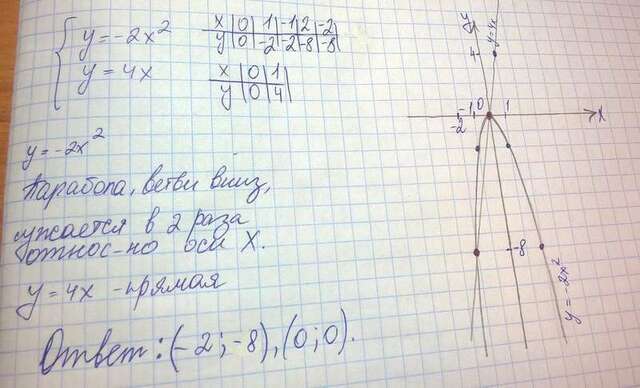 y = -2x²
x | 0 | 1 | -1 | 2 | -2
y | 0 | -2 | -2 | -8 | -8
y = 4x
x | 0 | 1
y | 0 | 4
y = -2x²
Парабола, ветви вниз,
сужается в 2 раза
относ-но оси X.
y = 4x - прямая
Ответ: (-2; -8), (0; 0).
y
y=4x
4
-1 0 1 X
-2
-8
y = -2x²